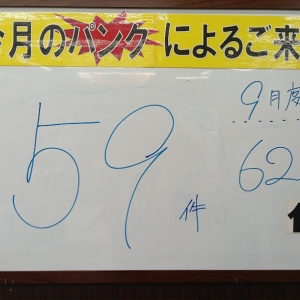 今月のパンクによるご来
9月度
59件
62